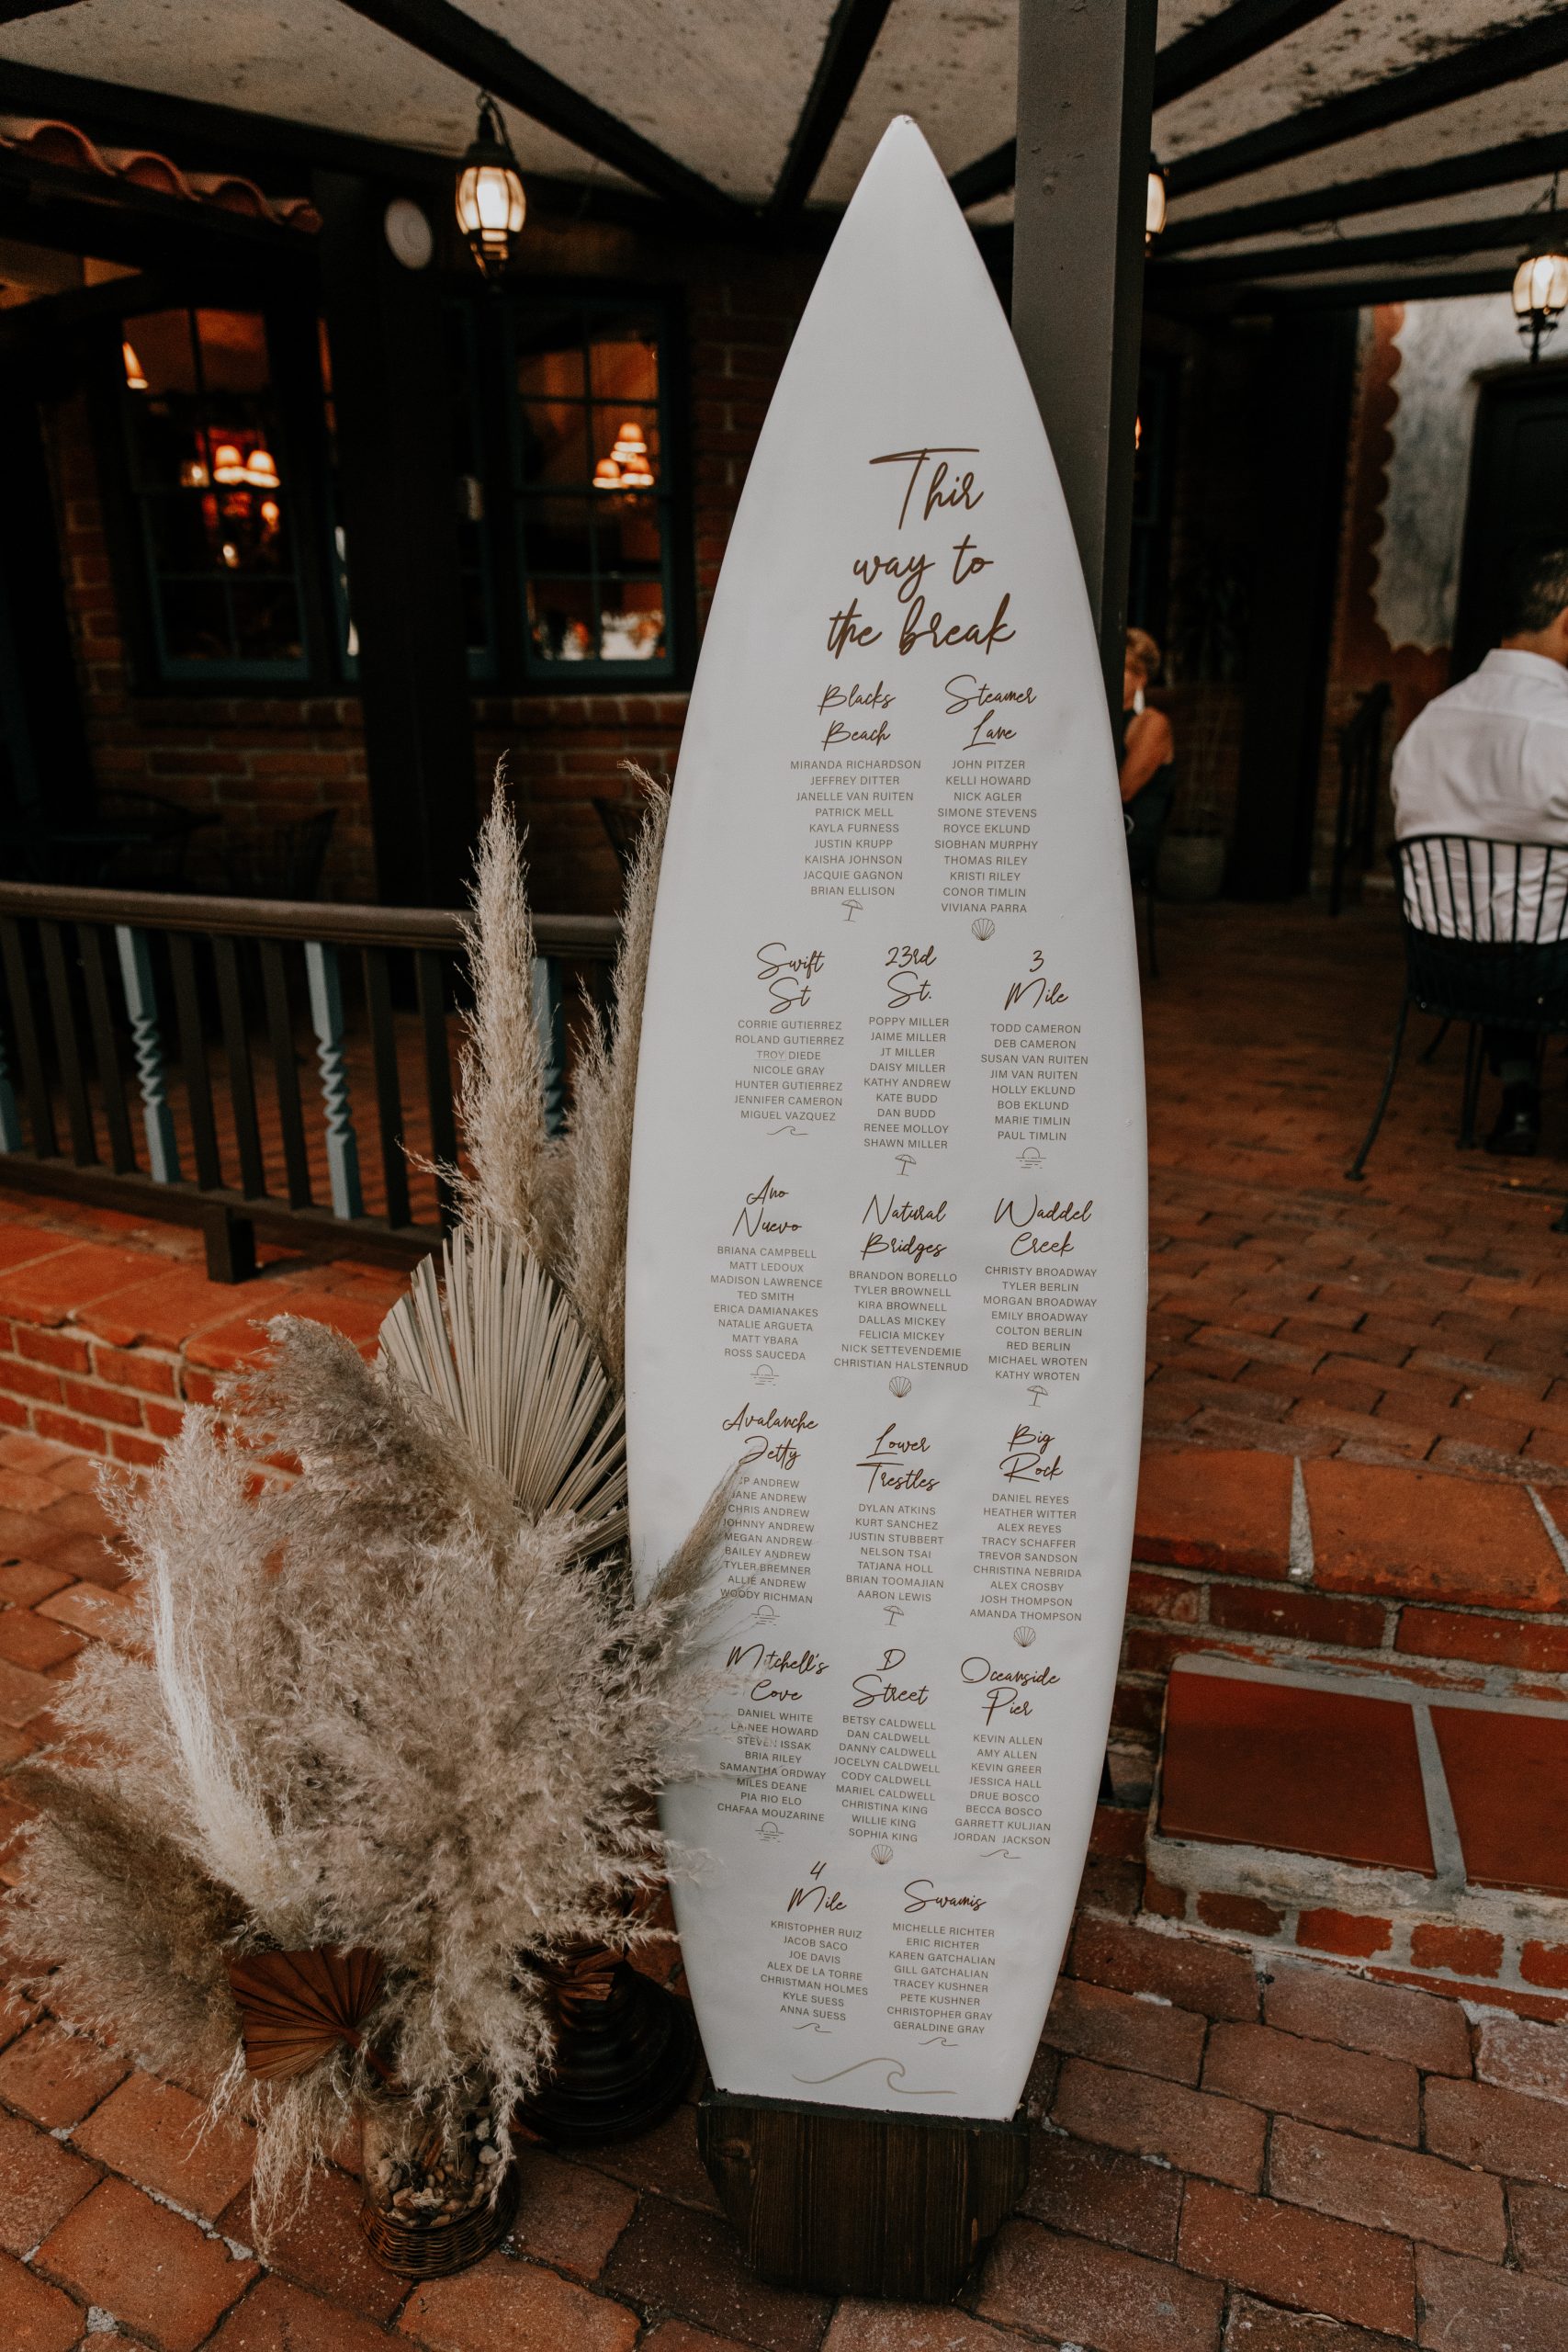 This
way to
the break
Blacks
Beach
MIRANDA RICHARDSON
JEFFREY DITTER
JANELLE VAN RUITEN
PATRICK MELL
KAYLA FURNESS
JUSTIN KRUPP
KAISHA JOHNSON
JACQUIE GAGNON
BRIAN ELLISON
Steamer
Lane
JOHN PITZER
KELLI HOWARD
NICK AGLER
SIMONE STEVENS
ROYCE EKLUND
SIOBHAN MURPHY
THOMAS RILEY
KRISTI RILEY
CONOR TIMLIN
VIVIANA PARRA
Swift
St
CORRIE GUTIERREZ
ROLAND GUTIERREZ
TROY DIEDE
NICOLE GRAY
HUNTER GUTIERREZ
JENNIFER CAMERON
MIGUEL VAZQUEZ
23rd
St.
POPPY MILLER
JAIME MILLER
JT MILLER
DAISY MILLER
KATHY ANDREW
KATE BUDD
DAN BUDD
RENEE MOLLOY
SHAWN MILLER
3
Mile
TODD CAMERON
DEB CAMERON
SUSAN VAN RUITEN
JIM VAN RUITEN
HOLLY EKLUND
BOB EKLUND
MARIE TIMLIN
PAUL TIMLIN
Ano
Nuevo
BRIANA CAMPBELL
MATT LEDOUX
MADISON LAWRENCE
TED SMITH
ERICA DAMIANAKES
NATALIE ARGUETA
MATT YBARA
ROSS SAUCEDA
Natural
Bridges
BRANDON BORELLO
TYLER BROWNELL
KIRA BROWNELL
DALLAS MICKEY
FELICIA MICKEY
NICK SETTEVENDEMIE
CHRISTIAN HALSTENRUD
Waddel
Creek
CHRISTY BROADWAY
TYLER BERLIN
MORGAN BROADWAY
EMILY BROADWAY
COLTON BERLIN
RED BERLIN
MICHAEL WROTEN
KATHY WROTEN
Avalanche
Jetty
ANDREW
ANDREW
CHRIS ANDREW
JOHNNY ANDREW
MEGAN ANDREW
BAILEY ANDREW
TYLER BREMNER
ALLIE ANDREW
WOODY RICHMAN
Lower
Trestles
DYLAN ATKINS
KURT SANCHEZ
JUSTIN STUBBERT
NELSON TSAI
TATJANA HOLL
BRIAN TOOMAJIAN
AARON LEWIS
Big
Rock
DANIEL REYES
HEATHER WITTER
ALEX REYES
TRACY SCHAFFER
TREVOR SANDSON
CHRISTINA NEBRIDA
ALEX CROSBY
JOSH THOMPSON
AMANDA THOMPSON
Mitchell's
Cove
DANIEL WHITE
HOWARD
STEVEN ISSAK
BRIA RILEY
SAMANTHA ORDWAY
MILES DEANE
PIA RIO ELO
CHAFAA MOUZARINE
D
Street
BETSY CALDWELL
DAN CALDWELL
DANNY CALDWELL
JOCELYN CALDWELL
CODY CALDWELL
MARIEL CALDWELL
CHRISTINA KING
WILLIE KING
SOPHIA KING
Oceanside
Pier
KEVIN ALLEN
AMY ALLEN
KEVIN GREER
JESSICA HALL
DRUE BOSCO
BECCA BOSCO
GARRETT KULJIAN
JORDAN JACKSON
4
Mile
KRISTOPHER RUIZ
JACOB SACO
JOE DAVIS
ALEX DE LA TORRE
CHRISTMAN HOLMES
KYLE SUESS
ANNA SUESS
Swamis
MICHELLE RICHTER
ERIC RICHTER
KAREN GATCHALIAN
GILL GATCHALIAN
TRACEY KUSHNER
PETE KUSHNER
CHRISTOPHER GRAY
GERALDINE GRAY